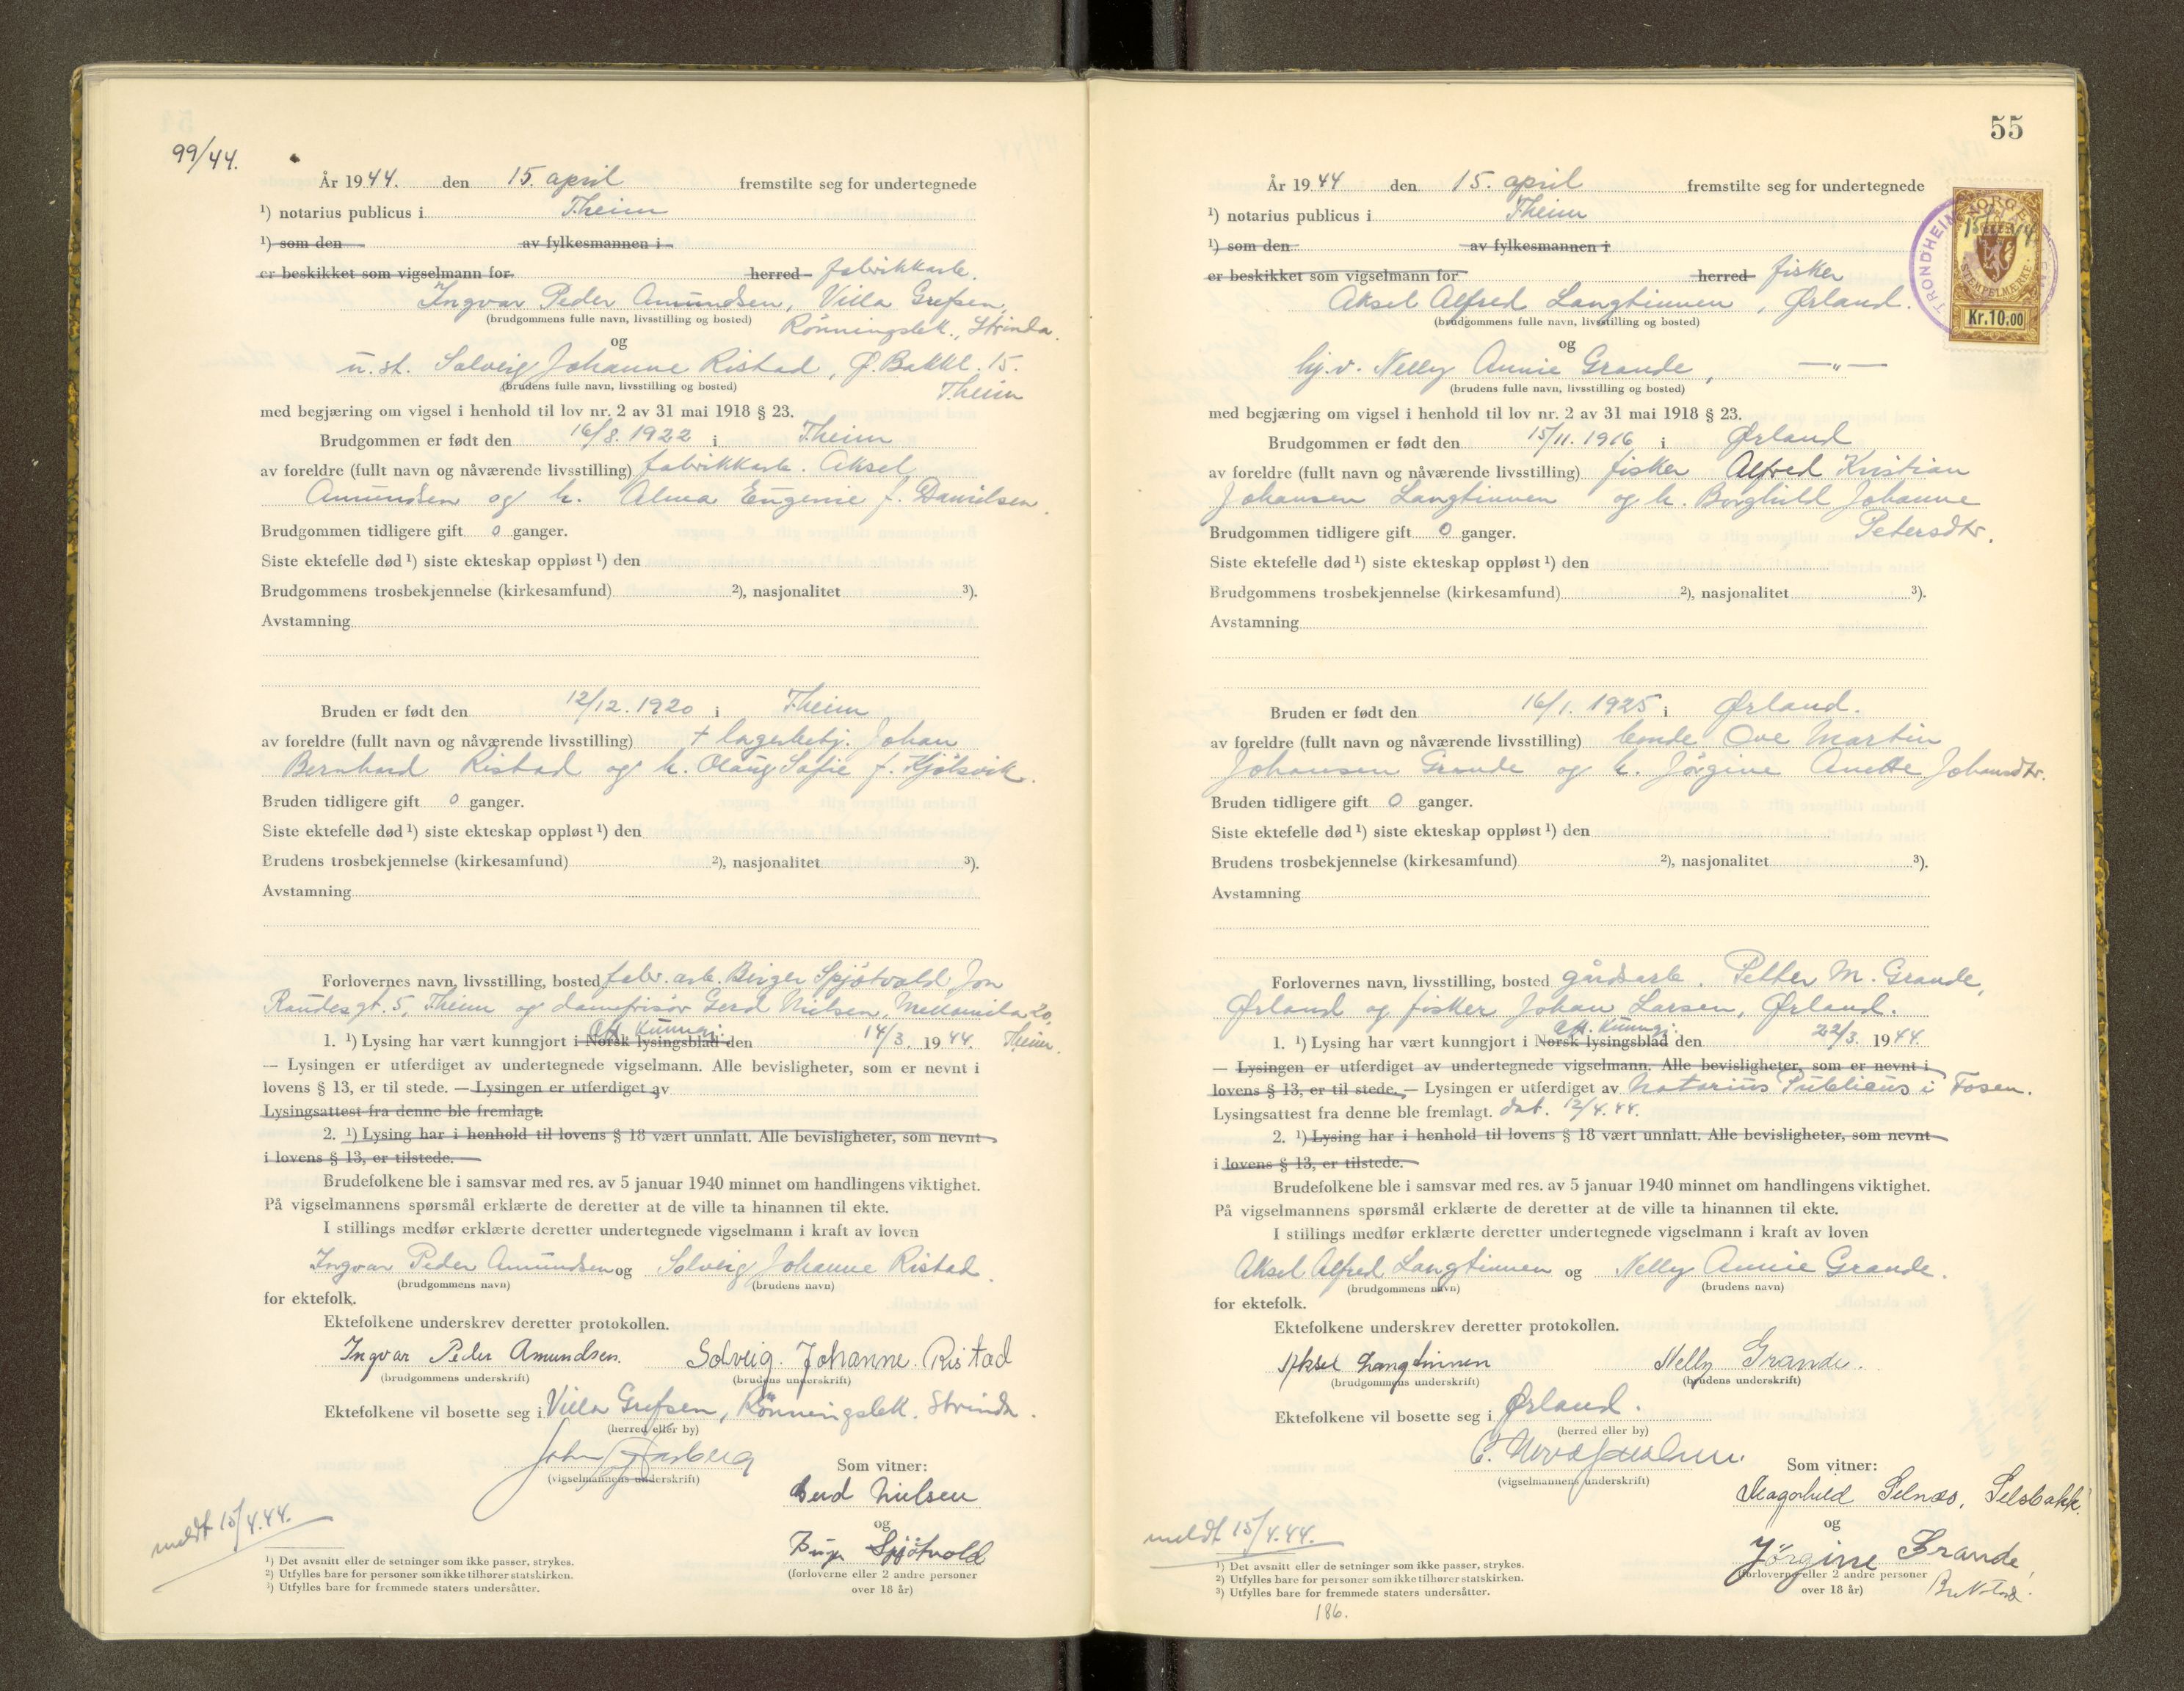 99/44.
År 1944. den 15. april fremstilte seg for undertegnede
¹) notarius publicus i T.heim
¹) som den av fylkesmannen i
er beskikket som vigselmann for herred fabrikkarb.
Ingvar Peder Amundsen, Villa Grefsen,
(brudgommens fulle navn, livsstilling og bosted) Rönningsbk., Strinda.
og
u. st. Solveig Johanne Ristad, Ø. Bakkl. 15.
(brudens fulle navn, livsstilling og bosted) T.heim
med begjæring om vigsel i henhold til lov nr. 2 av 31 mai 1918 § 23.
Brudgommen er født den 16/8. 1922 i T.heim
av foreldre (fullt navn og nåværende livsstilling) fabrikkarb. Aksel
Amundsen og h. Alma Eugenie f. Danielsen.
Brudgommen tidligere gift 0 ganger.
Siste ektefelle død ¹) siste ekteskap oppløst ¹) den
Brudgommens trosbekjennelse (kirkesamfund) ²), nasjonalitet ³).
Avstamning
Bruden er født den 12/12. 1920 i T.heim
av foreldre (fullt navn og nåværende livsstilling) † lagerbetj. Johan
Bernhard Ristad og h. Olaug Sofie f. Kjølsvik.
Bruden tidligere gift 0 ganger.
Siste ektefelle død ¹) siste ekteskap oppløst ¹) den
Brudens trosbekjennelse (kirkesamfund) ²), nasjonalitet ³).
Avstamning
Forlovernes navn, livsstilling, bosted fabr. arb. Birger Spjøtvold Jon
Raudes gt. 5, T.heim og damefrisør Gerd Nielsen, Mellomila 20,
1. ¹) Lysing har vært kunngjort i Norsk lysingsblad Off. Kunngj. den 14/3. 1944. T.heim.
— Lysingen er utferdiget av undertegnede vigselmann. Alle bevisligheter, som er nevnt i
lovens § 13, er til stede. — Lysingen er utferdiget av
Lysingsattest fra denne ble fremlagt.
2. ¹) Lysing har i henhold til lovens § 18 vært unnlatt. Alle bevisligheter, som nevnt
i lovens § 13, er tilstede.
Brudefolkene ble i samsvar med res. av 5 januar 1940 minnet om handlingens viktighet.
På vigselmannens spørsmål erklærte de deretter at de ville ta hinannen til ekte.
I stillings medfør erklærte deretter undertegnede vigselmann i kraft av loven
Ingvar Peder Amundsen og Solveig Johanne Ristad.
(brudgommens navn) (brudens navn)
for ektefolk.
Ektefolkene underskrev deretter protokollen.
Ingvar Peder Amundsen. Solveig. Johanne. Ristad
(brudgommens underskrift) (brudens underskrift)
Ektefolkene vil bosette seg i Villa Grefsen, Rönningsbk. Strinda.
(herred eller by)
John Aasberg
(vigselmannens underskrift) Som vitner:
Gerd Nielsen
og
Birger Spjøtvold
(forloverne eller 2 andre personer
over 18 år)
meldt 15/4.44.
¹) Det avsnitt eller de setninger som ikke passer, strykes.
²) Utfylles bare for personer som ikke tilhører statskirken.
³) Utfylles bare for fremmede staters undersåtter.
55
År 1944 den 15. april fremstilte seg for undertegnede
¹) notarius publicus i T.heim
¹) som den av fylkesmannen i
er beskikket som vigselmann for herred fisker
Aksel Alfred Langtinnen, Ørland.
(brudgommens fulle navn, livsstilling og bosted)
og
hj.v. Nelly Annie Grande, —„—
(brudens fulle navn, livsstilling og bosted)
TRONDHEIM
NORGE
STEMPELMÆRKE
Kr.10,00
med begjæring om vigsel i henhold til lov nr. 2 av 31 mai 1918 § 23.
Brudgommen er født den 15/11. 1916 i Ørland
av foreldre (fullt navn og nåværende livsstilling) fisker Alfred Kristian
Johansen Langtinnen og h. Borghild Johanne
Brudgommen tidligere gift 0 ganger. Petersdtr.
Siste ektefelle død ¹) siste ekteskap oppløst ¹) den
Brudgommens trosbekjennelse (kirkesamfund) ²), nasjonalitet ³).
Avstamning
Bruden er født den 16/1. 1925 i Ørland.
av foreldre (fullt navn og nåværende livsstilling) bonde Ove Martin
Johansen Grande og h. Jørgine Anette Johansdtr.
Bruden tidligere gift 0 ganger.
Siste ektefelle død ¹) siste ekteskap oppløst ¹) den
Brudens trosbekjennelse (kirkesamfund) ²), nasjonalitet ³).
Avstamning
Forlovernes navn, livsstilling, bosted gårdsarb. Petter M. Grande,
Ørland og fisker Johan Larsen, Ørland.
1. ¹) Lysing har vært kunngjort i Norsk lysingsblad Off. Kunngj. den 22/3. 1944.
— Lysingen er utferdiget av undertegnede vigselmann. Alle bevisligheter, som er nevnt i
lovens § 13, er til stede. — Lysingen er utferdiget av Notarius Publicus i Fosen.
Lysingsattest fra denne ble fremlagt. dat. 12/4.44.
2. ¹) Lysing har i henhold til lovens § 18 vært unnlatt. Alle bevisligheter, som nevnt
i lovens § 13, er tilstede.
Brudefolkene ble i samsvar med res. av 5 januar 1940 minnet om handlingens viktighet.
På vigselmannens spørsmål erklærte de deretter at de ville ta hinannen til ekte.
I stillings medfør erklærte deretter undertegnede vigselmann i kraft av loven
Aksel Alfred Langtinnen og Nelly Annie Grande.
(brudgommens navn) (brudens navn)
for ektefolk.
Ektefolkene underskrev deretter protokollen.
Aksel Langtinnen Nelly Grande.
(brudgommens underskrift) (brudens underskrift)
Ektefolkene vil bosette seg i Ørland.
(herred eller by)
(vigselmannens underskrift) Som vitner:
Magnhild Selnæs, Selsbakk.
og
Jörgine Grande
(forloverne eller 2 andre personer
over 18 år) Brekstad.
meldt 15/4.44.
¹) Det avsnitt eller de setninger som ikke passer, strykes.
²) Utfylles bare for personer som ikke tilhører statskirken.
³) Utfylles bare for fremmede staters undersåtter.
186.